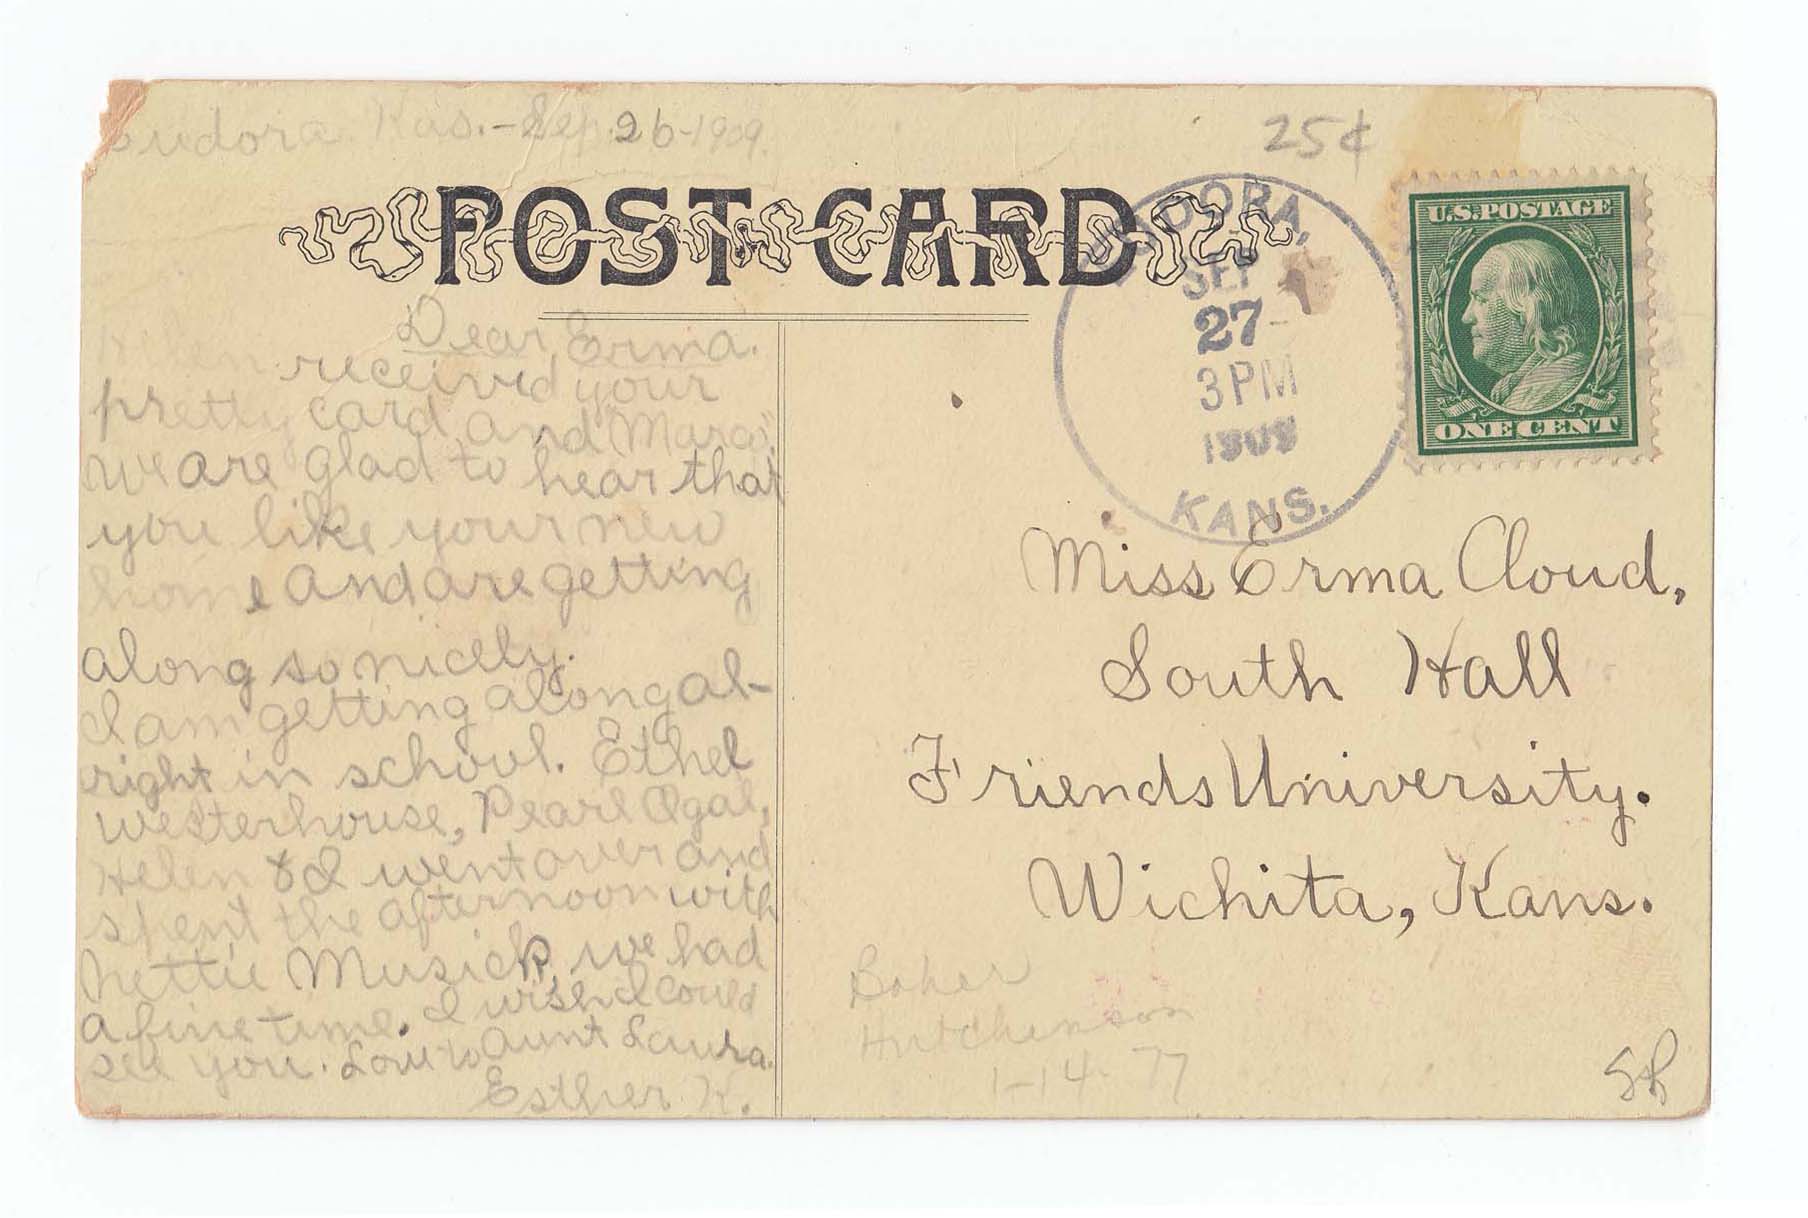 Eudora Kas.-Sep. 26-1909.
25¢
POST CARD
EUDORA,
SEP
27
3 PM
1909
KANS.
U.S. POSTAGE
ONE CENT
Dear Erma.
Helen received your
pretty card and Mara's
we are glad to hear that
you like your new
home and are getting
along so nicely.
I am getting along al-
right in school. Ethel
Westerhouse, Pearl Ogal,
Helen & I went over and
spent the afternoon with
Nettie Musick, we had
a fine time. I wish I could
see you. Love to Aunt Laura.
Esther K.
Miss Erma Cloud,
South Hall
Friends University.
Wichita, Kans.
Baker
Hutchinson
1-14-77